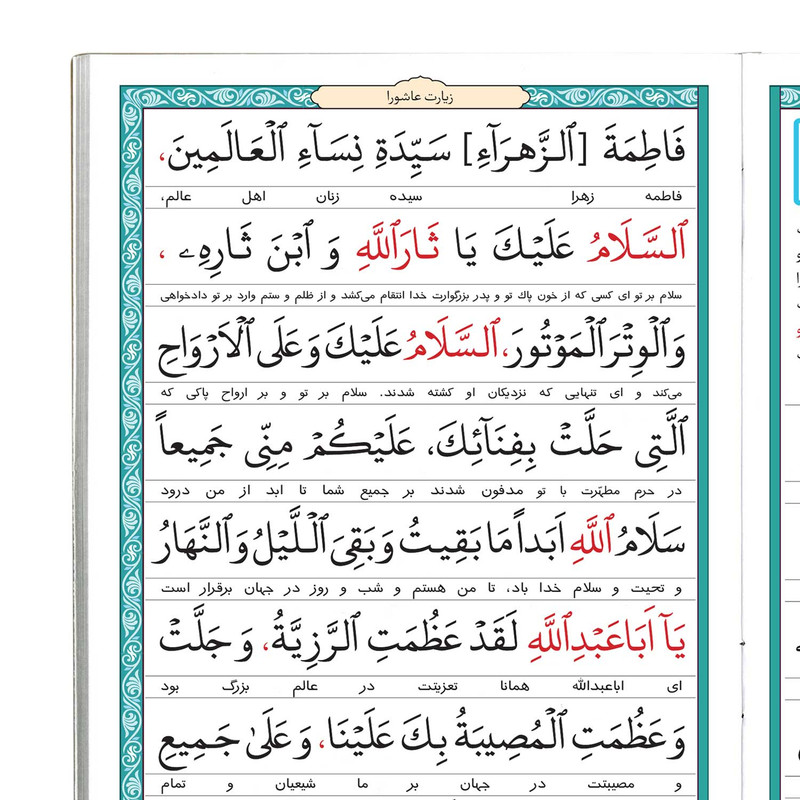 زیارت عاشورا
فَاطِمَةَ [ٱلزَّهرَآءِ] سَيِّدَةِ نِسَآءِ ٱلۡعَالَمِينَ،
فاطمه زهرا سیده زنان اهل عالم،
ٱلسَّلَامُ عَلَيۡكَ يَا ثَارَٱللَّهِ وَ ٱبۡنَ ثَارِهِۦ ،
سلام بر تو ای کسی که از خون پاك تو و پدر بزرگوارت خدا انتقام می‌کشد و از ظلم و ستم وارد بر تو دادخواهی
وَٱلۡوِتۡرَٱلۡمَوۡتُورَ،ٱلسَّلَامُ عَلَيۡكَ وَعَلَى ٱلۡاَرۡوَاحِ
می‌کند و ای تنهایی که نزدیکان او کشته شدند. سلام بر تو و بر ارواح پاکی که
ٱلَّتِی حَلَّتۡ بِفِنَآئِكَ، عَلَيۡكُمۡ مِنِّی جَمِيعاً
در حرم مطهّرت با تو مدفون شدند بر جمیع شما تا ابد از من درود
سَلَامُ ٱللَّهِ اَبَداً مَا بَقِيتُ وَ بَقِیَ ٱلَّيۡلُ وَٱلنَّهَارُ
و تحیت و سلام خدا باد، تا من هستم و شب و روز در جهان برقرار است
يَآ اَبَا عَبۡدِٱللَّهِ لَقَدۡ عَظُمَتِ ٱلرَّزِيَّةُ، وَ جَلَّتۡ
ای اباعبدالله همانا تعزیتت در عالم بزرگ بود
وَ عَظُمَتِ ٱلۡمُصِيبَةُ بِكَ عَلَيۡنَا، وَ عَلَىٰ جَمِيعِ
و مصیبتت در جهان بر ما شیعیان و تمام